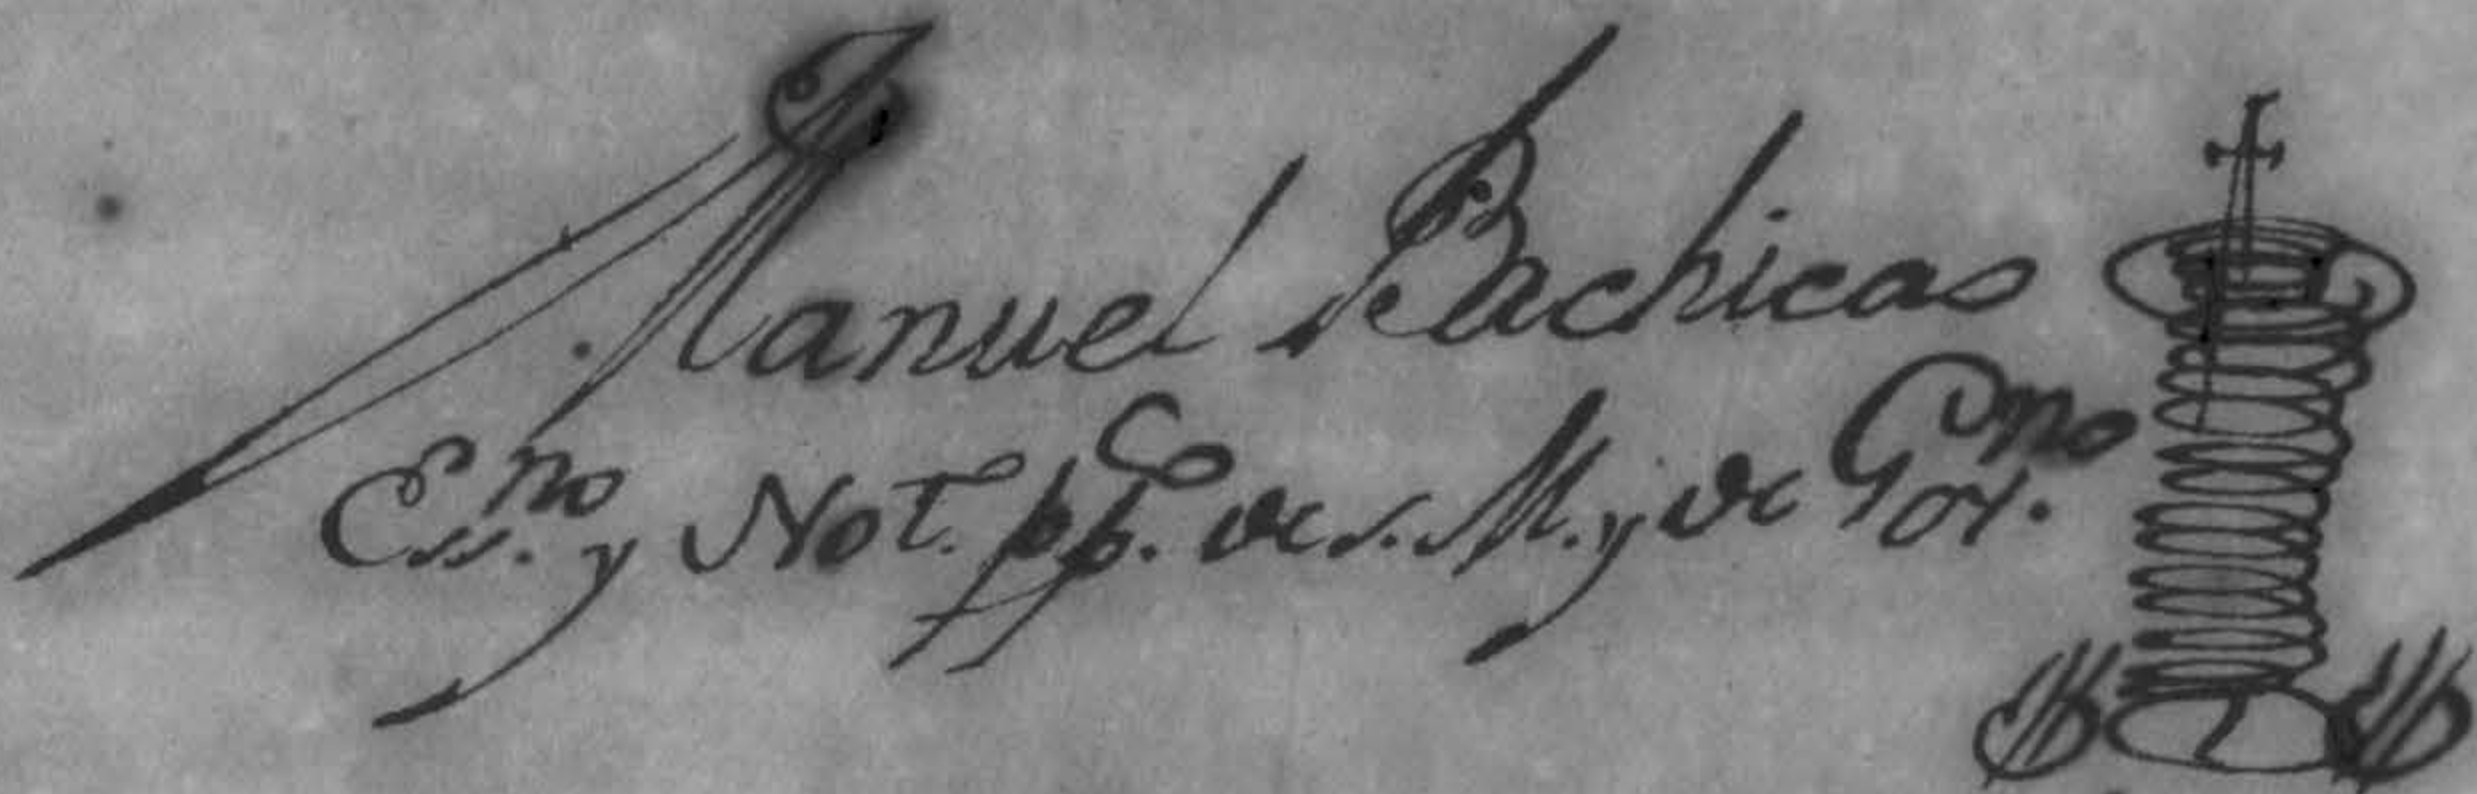 Manuel Bachicas
Ess.no y Not. pp.co de s. M. y de Gov.no